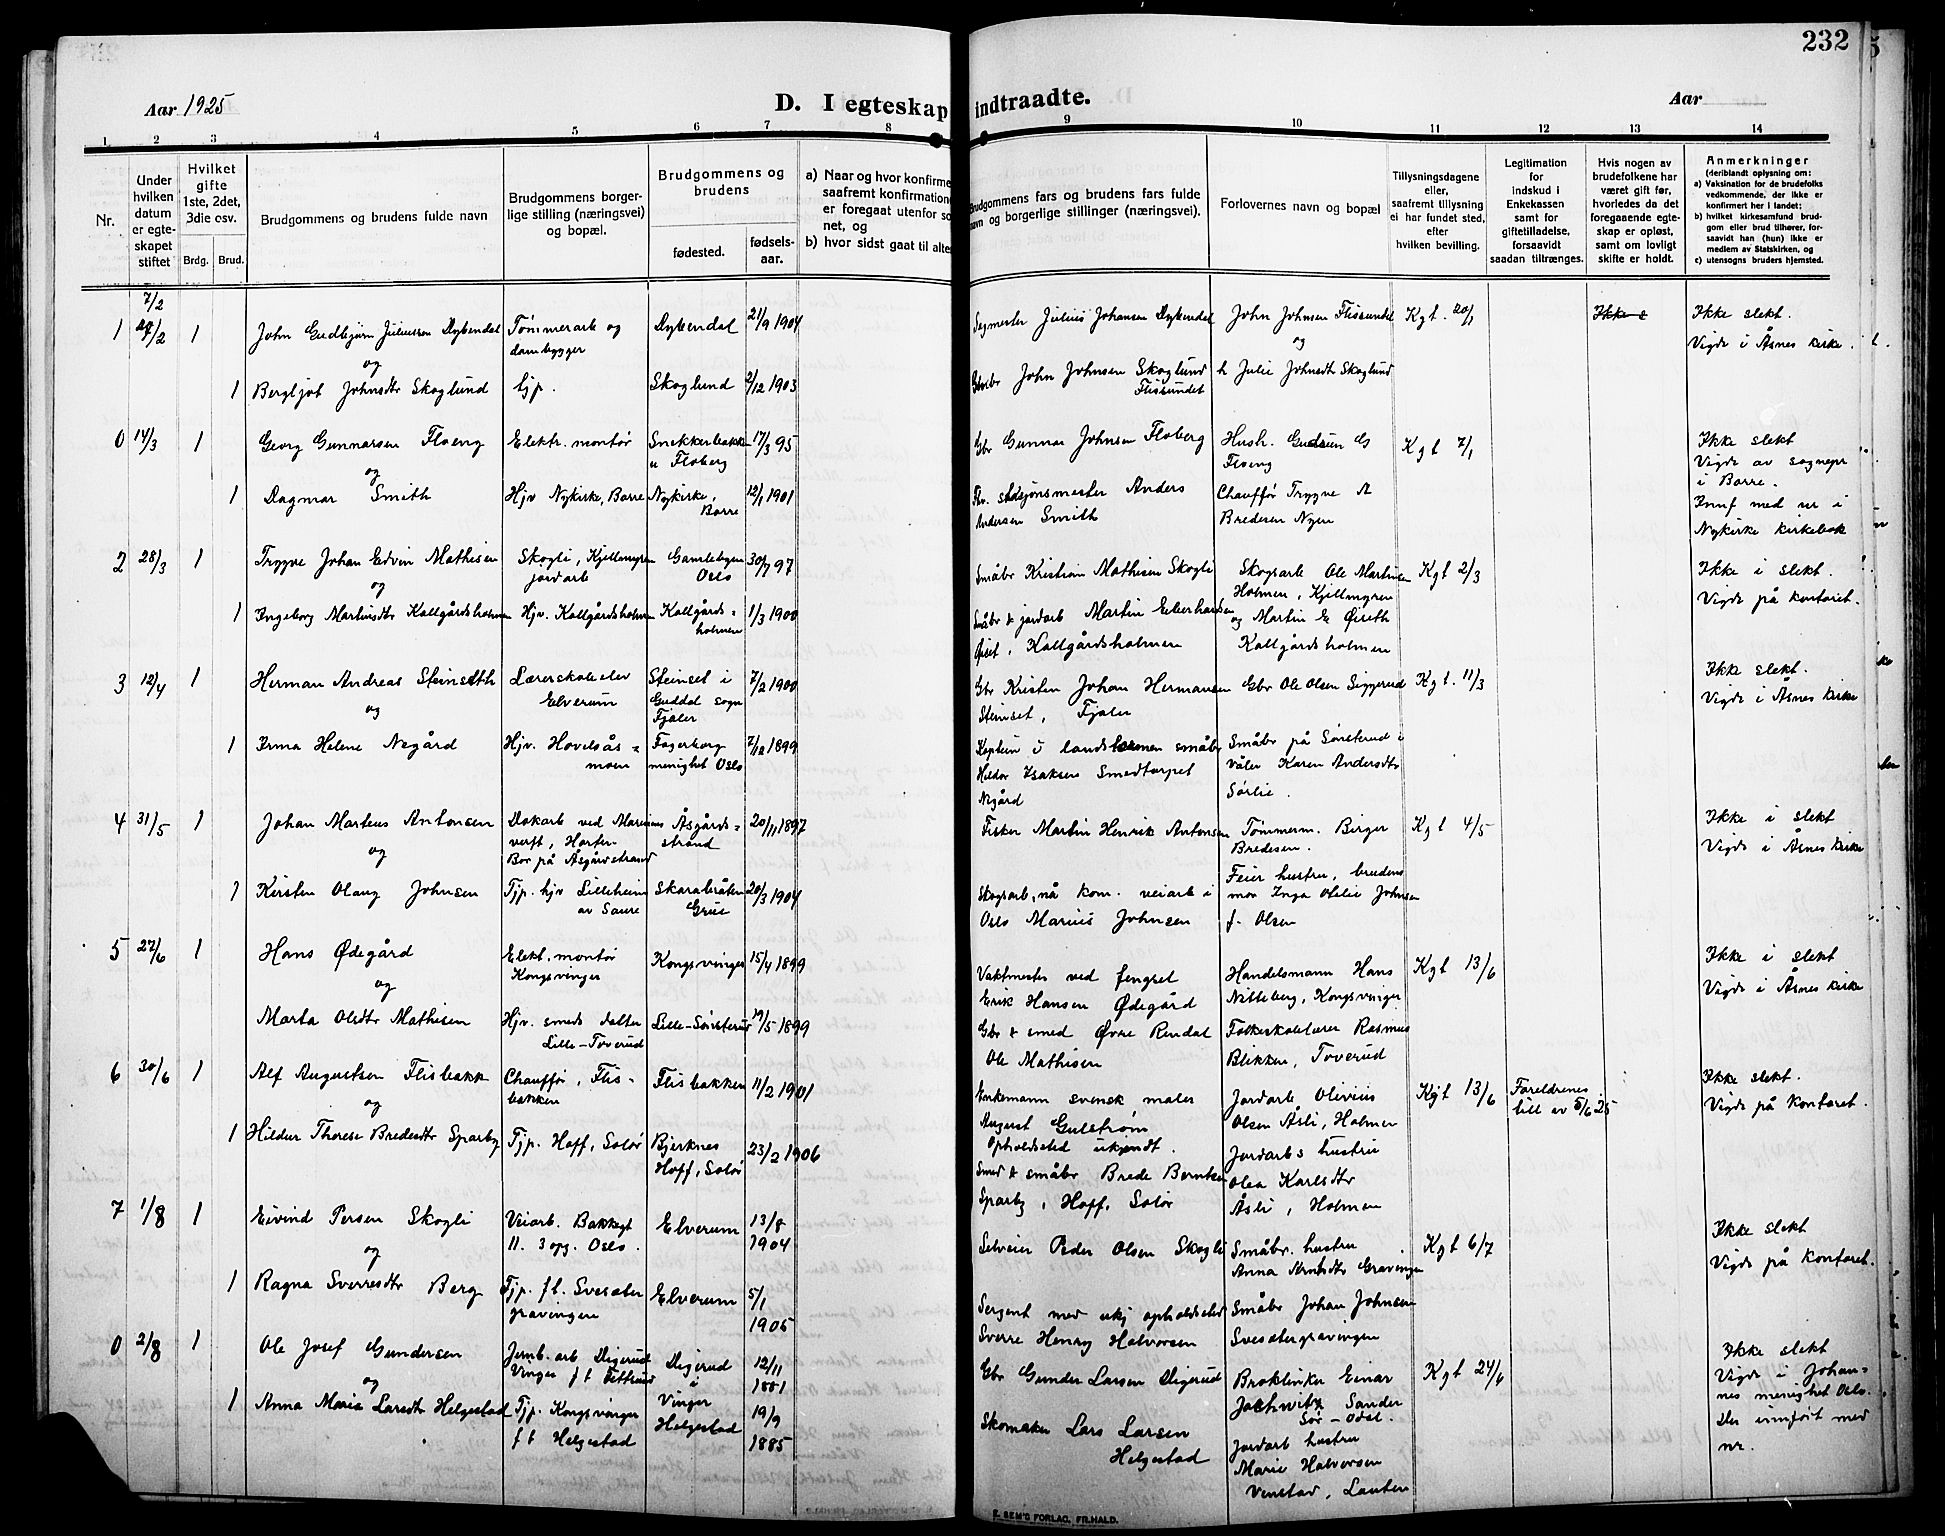 232
Aar 1925
D. I egteskap indtraadte.
Aar
1 2 3 4 5 6 7 8 9 10 11 12 13 14
Nr.
Under hvilken datum er egteskapet stiftet
Hvilket gifte 1ste, 2det, 3die osv.
Brdg. Brud.
Brudgommens og brudens fulde navn
Brudgommens borgerlige stilling (næringsvei) og bopæl.
Brudgommens og brudens
fødested.
fødselsaar.
a) Naar og hvor konfirme
saafremt konfirmatione
er foregaat utenfor so
net, og
b) hvor sidst gaat til alte
Brudgommens fars og brudens fars fulde navn og borgerlige stillinger (næringsvei).
Forlovernes navn og bopæl
Tillysningsdagene eller, saafremt tillysning ei har fundet sted, efter hvilken bevilling.
Legitimation for indskud i Enkekassen samt for giftetilladelse, forsaavidt saadan tiltrænges.
Hvis nogen av brudefolkene har været gift før, hvorledes da det foregaaende egteskap er opløst, samt om lovligt skifte er holdt.
Anmerkninger
(deriblandt oplysning om:
a) Vaksination for de brudefolks vedkommende, der ikke er konfirmert her i landet;
b) hvilket kirkesamfund brudgom eller brud tilhører, forsaavidt han (hun) ikke er medlem av Statskirken, og
c) utensogns bruders hjemsted.
7/2
1 1 John Gudbjørn Juliussøn Dybendal Tømmerarb og dambygger Dybendal 21/9 1904 Sagmester Julius Johansen Dybendal John Johnsen Flissundet Kgt. 20/1 Ikke slekt.
Vigde i Åsnes kirke.
og
1 Bergljot Johnsdtr Skoglund tjp. Skoglund 2/12 1903 John Johnsen Skoglund Flissundet h Julie Johnsdtr Skoglund
0 14/3 1 Georg Gunnarsen Floeng Elektr. montør Snekkerbakk u Floberg 17/3 95 Gbr Gunnar Johnsen Floberg Hush. Gudrun G Floeng Kgt 7/1 Ikke slekt
Vigde av sognepr i Borre.
og
1 Dagmar Smith Hjv Nykirke, Borre Nykirke, Borre 12/1 1901 Fhv. stasjonsmester Anders Andersen Smith Chauffør Trygve A Bredesen Nyen Innf med nr i Nykirke kirkebok
2 28/3 1 Trygve Johan Edvin Mathisen Skogli, Kjellmyren jordarb Gamlebyen Oslo 30/7 97 Småbr Kristian Mathisen Skogli Skogsarb Ole Martinsen Holmen, Kjellmyren Kgt 2/3 Ikke i slekt.
Vigde på kontoret.
og
1 Ingeborg Martinsdtr Kallgårdsholmen Hjv. Kallgårdsholmen Kallgårdsholmen 1/3 1900 Småbr & jordarb Martin Eberhardsen Øiset, Kallgårdsholmen og Martin E Øiseth Kallgårdsholmen
3 12/4 1 Herman Andreas Steinseth Lærerskoleelev Elverum Steinset i Guddal sogn Fjaler 7/2 1900 Gbr Kristen Johan Hermansen Steinset, Fjaler Gbr Ole Olsen Siggerud Kgt. 11/3 Ikke slekt.
Vigde i Åsnes kirke
og
1 Irma Helene Negård Hjv. Hovelsåsmoen Fagerborg menighet Oslo 7/12 1899 Kaptein i landstormen småbr Hildor Isaksen Smedtorpet Negård Småbr på Sønsterud i Våler Karen Andersdtr Sørlie.
4 31/5 1 Johan Marteus Antonsen Dokarb ved Marinens verft, Horten Bor på Åsgårdstrand Åsgårdsstrand 20/11 1897 Fisker Martin Henrik Antonsen Tømmerm. Birger Bredesen. Kgt 4/5 Ikke i slekt
Vigde i Åsnes kirke
og
1 Kirsten Olaug Johnsen Tjp. hjv Lilleheim av Saure Skarabråten Grue 20/3 1904 Skogsarb, nå kom. veiarb i Oslo Marius Johnsen Feier hustru, brudens mor Inga Otilie Johnsen f. Olsen
5 27/6 1 Hans Ødegård Elekt. montør Kongsvinger Kongsvinger 15/4 1899 Vaktmester ved fengsel Erik Hansen Ødegård Handelsmann Hans Nitteberg, Kongsvinger Kgt 13/6 Ikke i slekt
Vigde i Åsnes kirke
og
Marta Olsdtr Mathisen Hjv. smeds datter Lille-Toverud Lille-Sønsterud 19/5 1899 Gbr & smed Øvre Rendal Ole Mathisen Folkeskolelærer Rasmus Blikken, Toverud
6 30/6 1 Alf Augustsen Flisbakk Chauffør, Flisbakken Flisbakken 11/2 1901 Enkemann svensk maler August Gulstrøm Opholdssted ukjendt. Jordarb Olivius Olsen Åsli, Holmen Kgt 13/6 Foreldrenes till av 5/6 25 Ikke slekt.
Vigde på kontoret.
og
1 Hildur Therese Bredesdtr Sparby Tjp. Hoff, Solør Bjerknes Hoff, Solør 23/2 1906 Smed & småbr Brede Berntsen Sparby, Hoff, Solør Jordarb s hustru Olea Karlsdtr Åsli, Holmen
7 1/8 1 Eivind Persen Skogli Veiarb. Bakkegt 11. 3 opg. Oslo. Elverum 13/8 1904 Selveier Peder Olsen Skogli Småbr. hustru Anna Arntsdtr Gravingen Kgt 6/7 Ikke slekt
Vigde på kontoret.
og
1 Ragna Sverresdtr Berg Tjp. ft. Svesætergravingen Elverum 5/1 1905 Sergent med ukj opholdssted Sverre Henry Halvorsen Småbr Johan Johnsen Svesætergravingen
0 2/8 1 Ole Josef Gundersen Jernb. arb Digerud Vinger ft Digerud i Vinger 12/11 1881 Gbr Gunder Larsen Digerud Einar Sander Sør-Odal. Kgt 24/6 Ikke slekt
Vigde i Johannes menighet Oslo.
Der innført med nr.
og
1 Anna Maria Larsdtr Helgestad Tjp. Kongsvinger ft Helgestad Helgestad 19/9 1885 Skomaker Lars Larsen Helgestad Jordarb hustru Marie Halvorsen Venstad,
E. SEM'S FORLAG, FR.HALD.